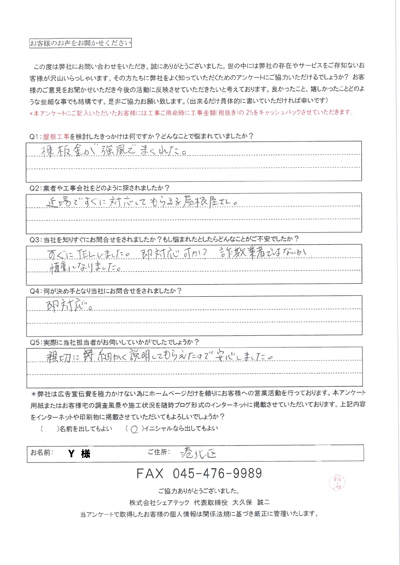 お客様のお声をお聞かせください
この度は弊社にお問い合わせをいただき、誠にありがとうございました。世の中には弊社の存在やサービスをご存知ないお
客様が沢山いらっしゃいます。その方たちに弊社をよく知っていただくためのアンケートにご協力いただけるでしょうか? お客
様のご意見をお聞かせいただき今後の活動に反映させていただきたいと考えております。良かったこと、嬉しかったことどのよ
うな些細な事でも結構です。是非ご協力お願い致します。(出来るだけ具体的に書いていただければ幸いです)
*本アンケートにご記入いただいたお客様には工事ご用命時に工事金額(税抜き)の2%をキャッシュバックさせていただきます。
Q1:屋根工事を検討したきっかけは何ですか?どんなことで悩まれていましたか?
棟板金が強風でまくれた。
Q2:業者や工事会社をどのように探されましたか?
近場ですぐに対応してもらえる屋根屋さん。
Q3:当社を知りすぐにお問合せをされましたか?もし悩まれたとしたらどんなことがご不安でしたか?
すぐにTELしました。即対応 詐欺業者ではないか
慎重になりました。
Q4:何が決め手となり当社にお問合せをされましたか?
即対応。
Q5:実際に当社担当者がお伺いしていかがでしたでしょうか?
親切に 細かく説明してもらえたので安心しました。
*弊社は広告宣伝費を極力かけない為にホームページだけを頼りにお客様への営業活動を行っております。本アンケート
用紙またはお客様宅の調査風景や施工状況を随時ブログ形式のインターネットに掲載させていただいております。上記内容
をインターネットや印刷物に掲載させていただいてもよろしいでしょうか?
( )名前を出してもよい (○)イニシャルなら出してもよい
お名前: Y 様 ご住所: 港北区
FAX 045-476-9989
ご協力ありがとうございました。
株式会社シェアテック 代表取締役 大久保 誠二
当アンケートで取得したお客様の個人情報は関係法規に基づき厳正に管理いたします。